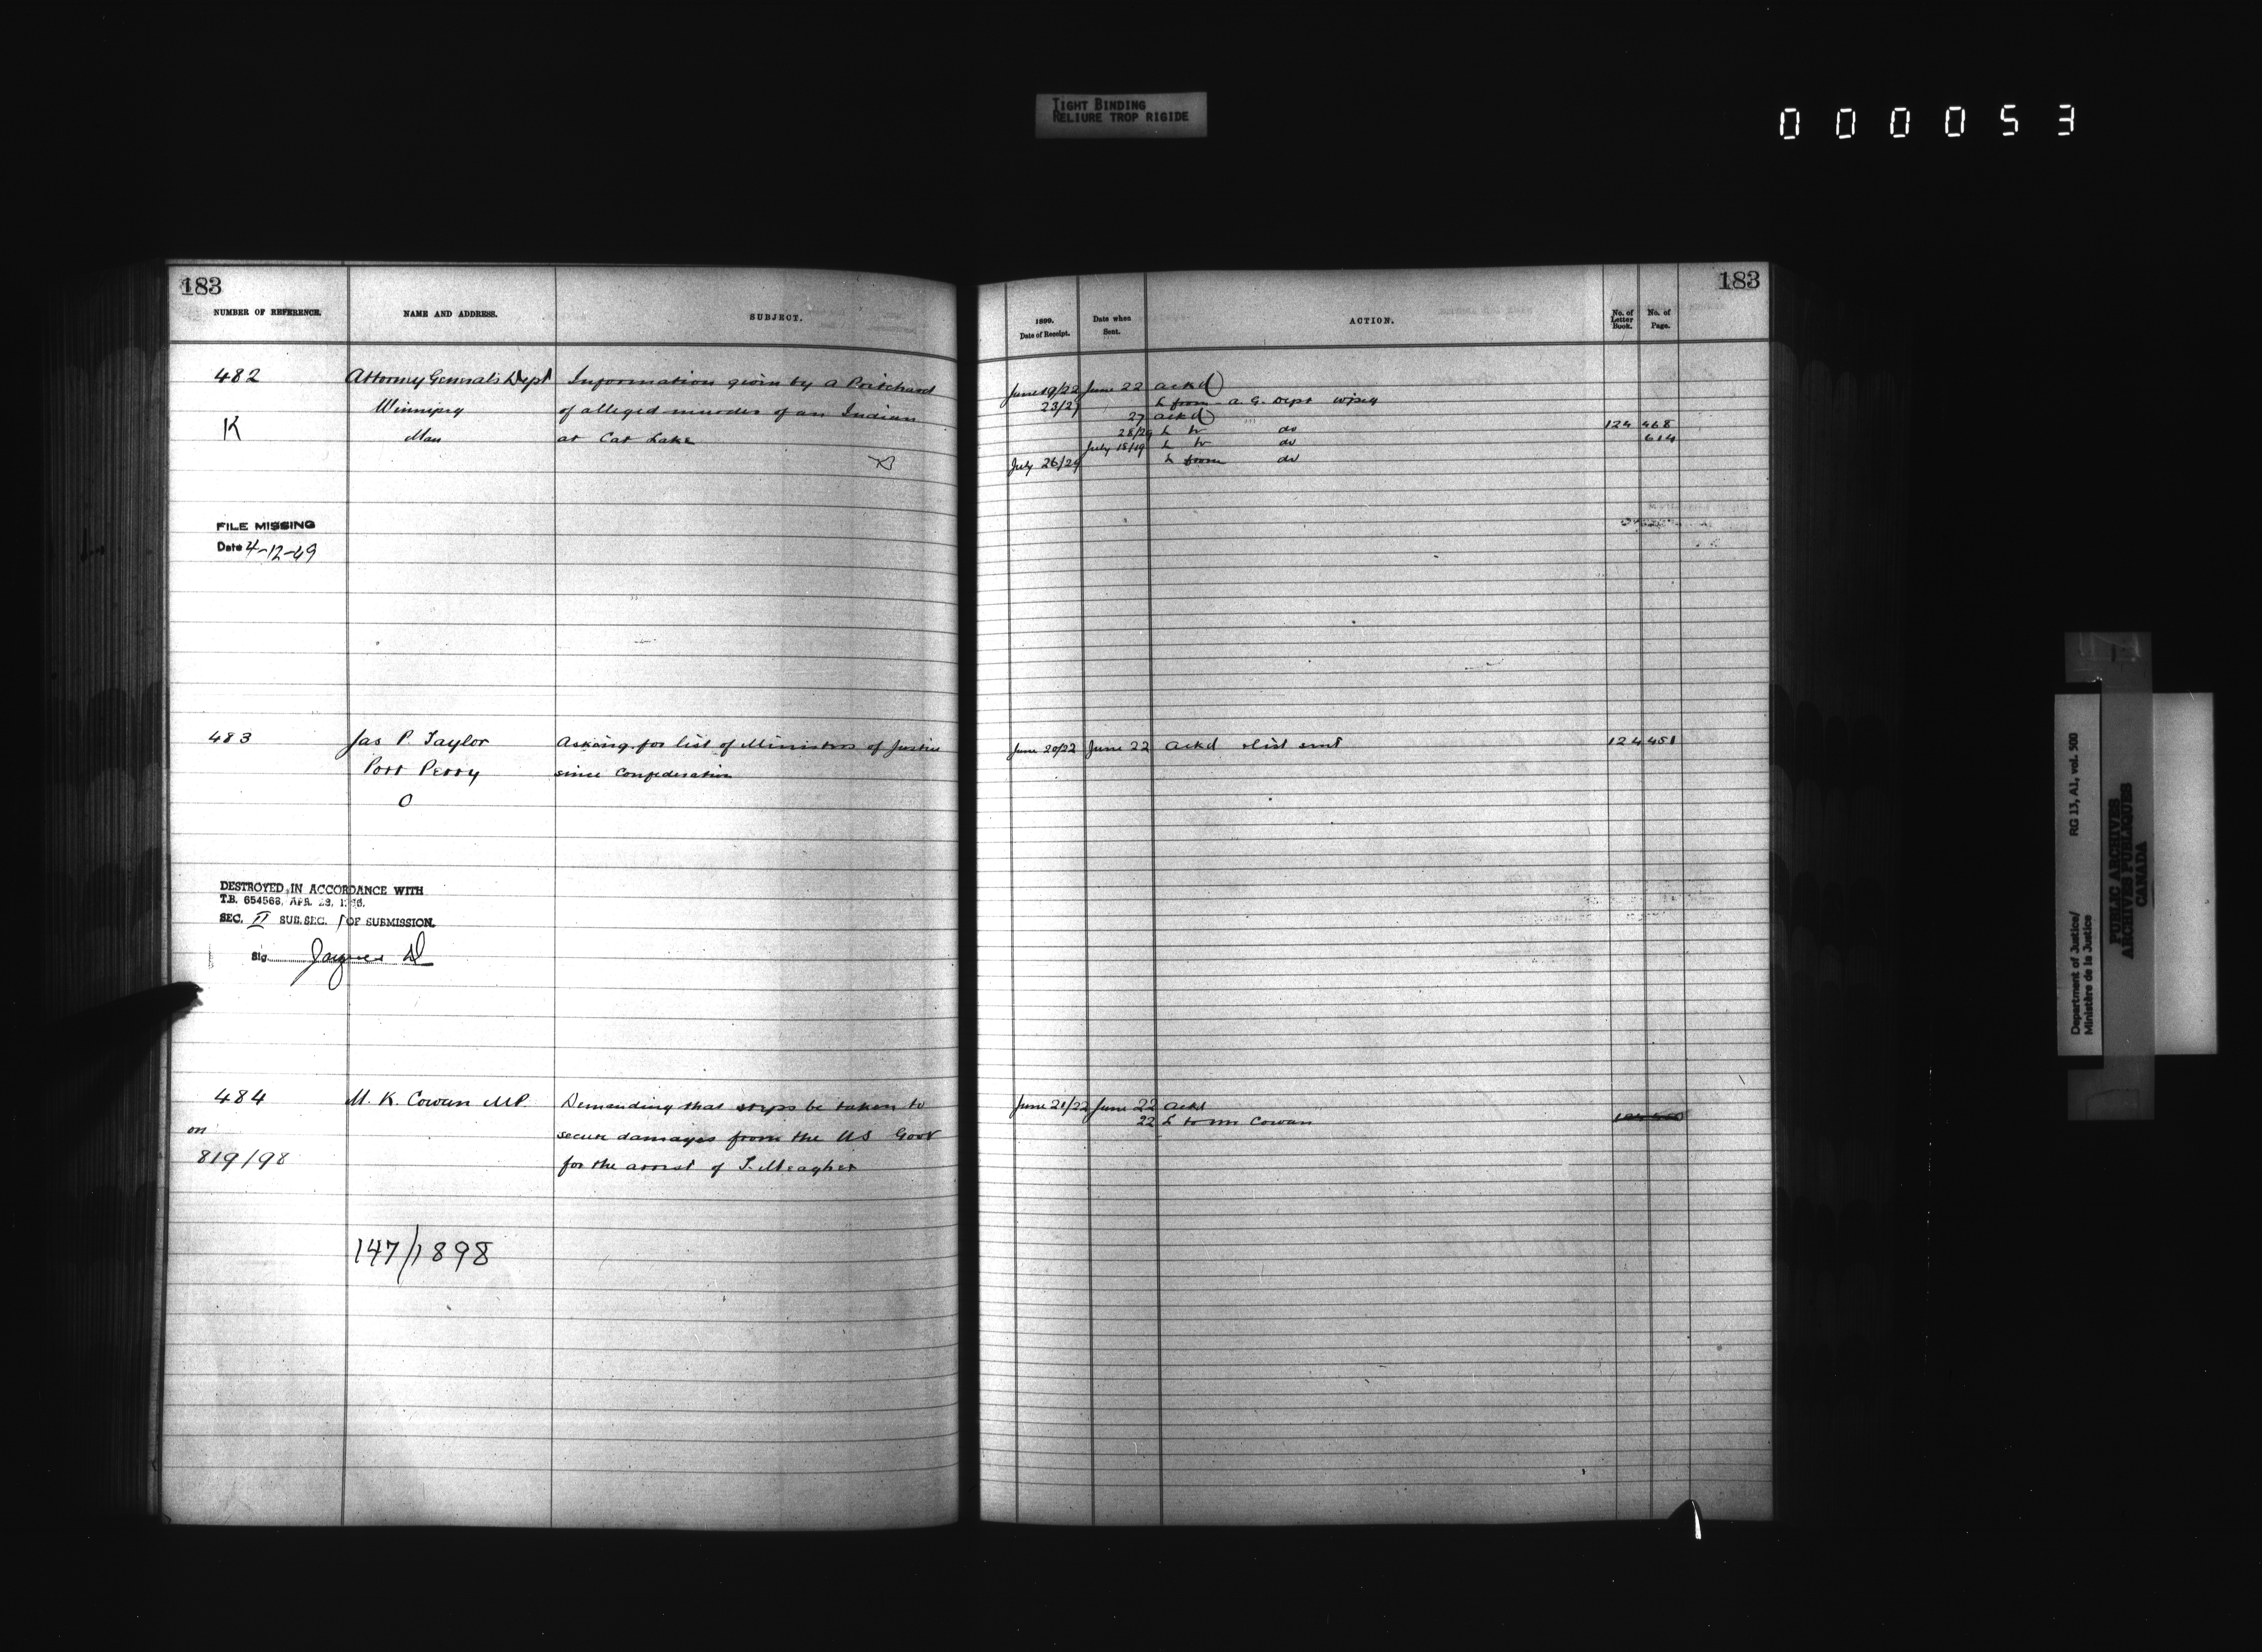 TIGHT BINDING
RELIURE TROP RIGIDE
000053
183
NUMBER OF REFERENCE.
NAME AND ADDRESS.
SUBJECT.
482
Attorney General's Dept
Information given by a Pritchard
Winnipeg
of alleged murder of an Indian
K
Man
at Cat Lake
FILE MISSING
Date 4-12-49
483
Jas P. Taylor
Asking for list of Ministers of Justice
Port Perry
since Confederation
O
DESTROYED IN ACCORDANCE WITH
T.B. 654568, APR. 28,
SEC. II SUB.SEC. 1 OF SUBMISSION.
Sig.
484
M. K. Cowan MP
Demanding that steps be taken to
on
secure damages from the US Govt
819/98
for the arrest of T. Meagher
147/1898
183
1899.
Date of Receipt.
Date when
Sent.
ACTION.
No. of
Letter
Book.
No. of
Page.
June 19/22 June 22 ackd
23/27 L from A. G. Dept Wpeg
27 ackd
28/29 L to do 124 468
July 18/19 L to do 614
July 26/29 L from do
June 20/22 June 22 Ackd & list sent 124 451
June 21/22 June 22 Ackd
22 L to Mr Cowan
Department of Justice/ RG 13, A1, vol. 500
Ministère de la Justice
PUBLIC ARCHIVES
ARCHIVES PUBLIQUES
CANADA